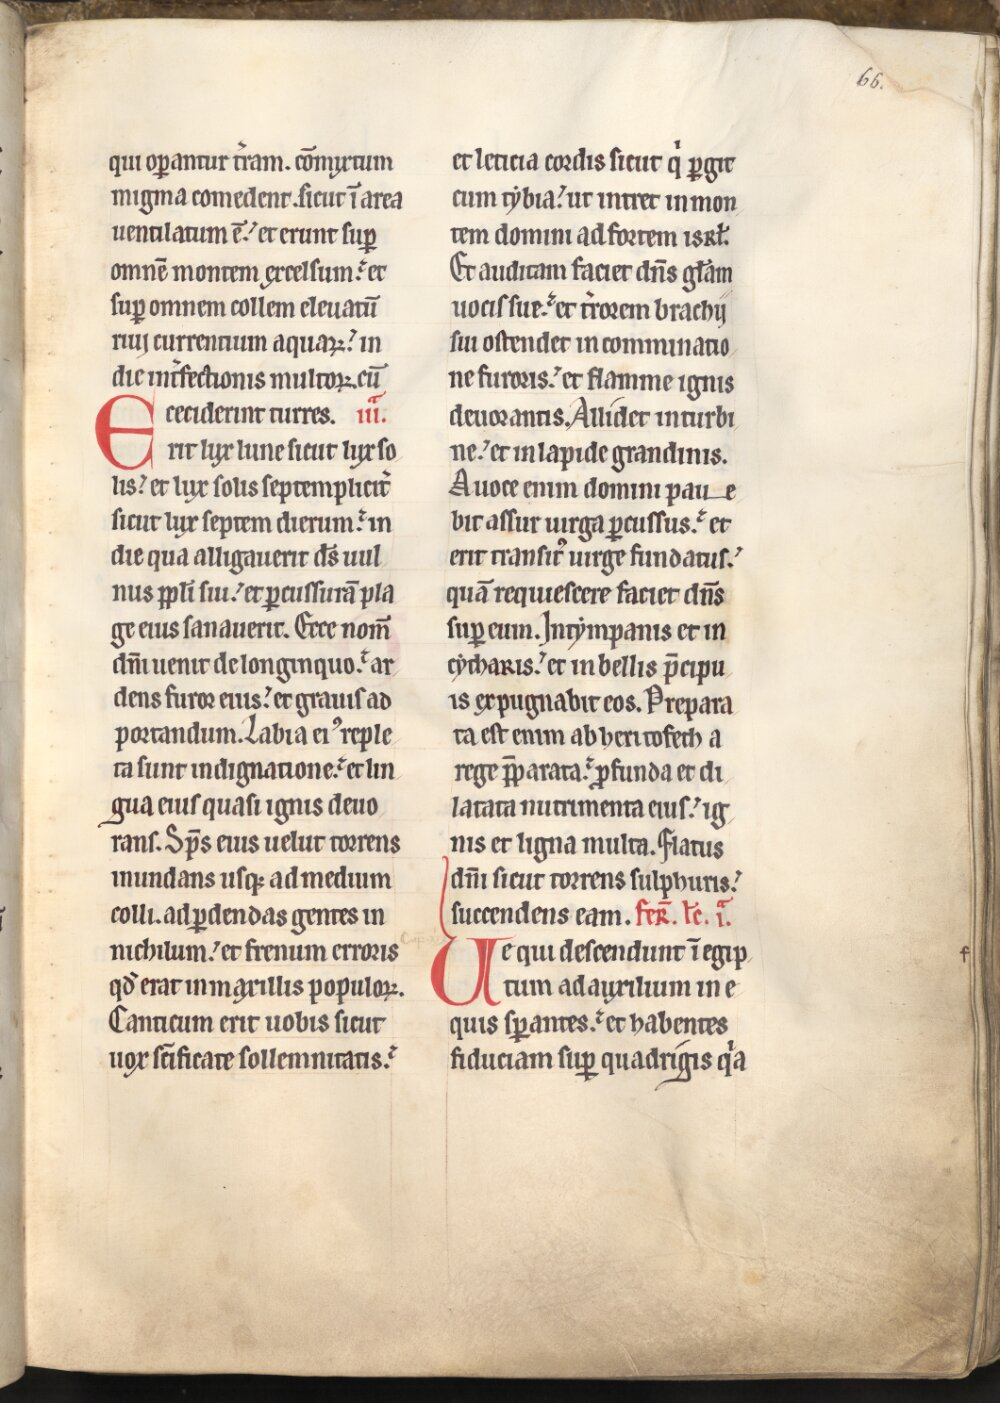 66.
qui oꝑantur t̄ram. cōmyxtum
migma comedent. sicut ī area
uentilatum ē.ʾ et erunt suꝑ
omnē montem excelsum.ʾ et
suꝑ omnem collem eleuatū
riuj currentium aquaꝝ.ʾ in
die int̄fectionis multoꝝ. cū
ceciderint turres. iii.ͣ
Erit lux lune sicut lux so
lis.ʾ et lux solis septemplicit̄
sicut lux septem dierum.ʾ in
die qua alligauerit dn̄s uul
nus ppl̄i sui.ʾ et ꝑcussurā pla
ge eius sanauerit. Ecce nom̄
dn̄i uenit de longinquo.ʾ ar
dens furor eius.ʾ et grauis ad
portandum. Labia eiꝰ reple
ta sunt indignatione.ʾ et lin
gua eius quasi ignis deuo
rans. Sp̄s eius uelut torrens
inundans usqꝫ ad medium
colli. ad ꝑdendas gentes in
nichilum.ʾ et frenum erroris
qd̄ erat in maxillis populoꝝ.
Canticum erit uobis sicut
uox sc̄ificate sollemnitatis.ʾ
et leticia cordis sicut qͥ ꝑgit
cum tybia.ʾ ut intret in mon
tem domini ad fortem isrl̄.
Et auditam faciet dn̄s gl̄am
uocis sue.ʾ et t̄rorem brachij
sui ostendet in comminatio
ne furoris.ʾ et flamme ignis
deuorantis. Allidet in turbi
ne.ʾ et in lapide grandinis.
A uoce enim domini paue
bit assur uirga ꝑcussus.ʾ et
erit transitꝰ uirge fundatus.ʾ
quā requiescere faciet dn̄s
suꝑ eum. In tympanis et in
cytharis.ʾ et in bellis p̄cipu
is expugnabit eos. Prepara
ta est enim ab heri tofeth a
rege p̄parata.ʾ ꝓfunda et di
latata nutrimenta eius.ʾ ig
nis et ligna multa. Flatus
dn̄i sicut torrens sulphuris.ʾ
succendens eam. fer̄. lc̄. i.ͣ
Ue qui descendunt ī egip
tum ad auxilium in e
quis sꝑantes.ʾ et habentes
fiduciam suꝑ quadrigis qͥa
f